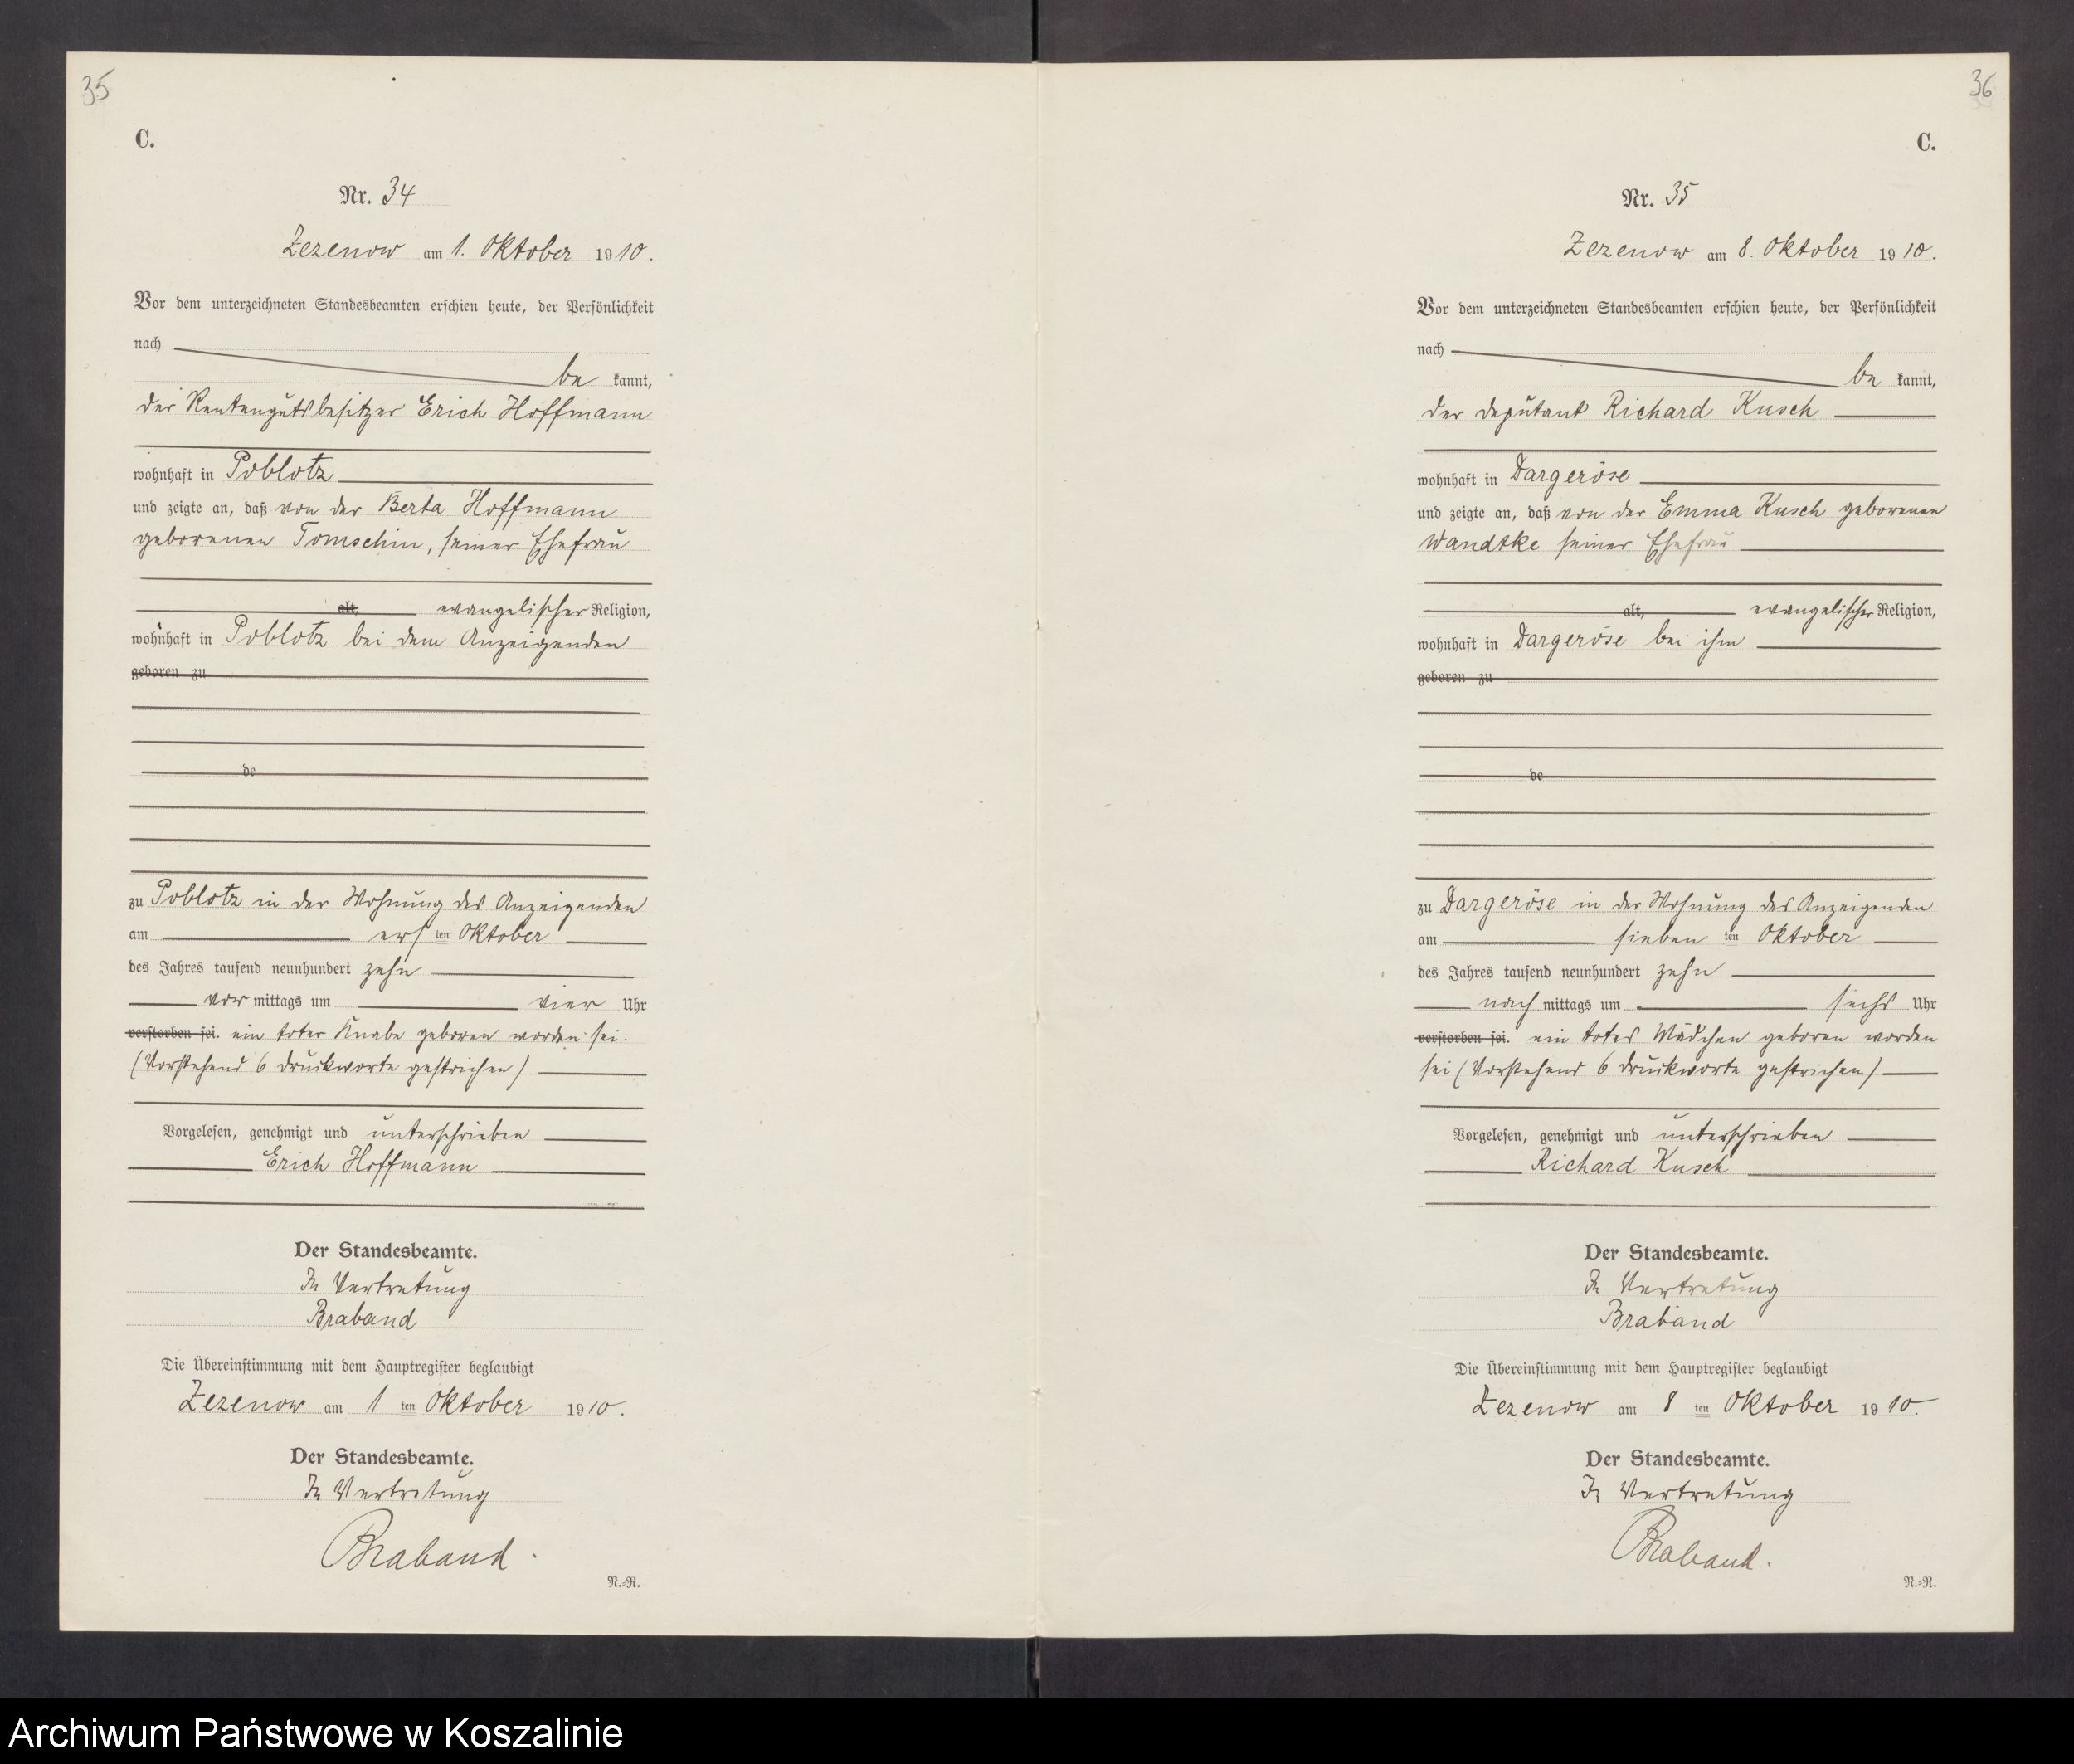 35
C.
Nr. 34
Zezenow am 1. Oktober 1910.
Vor dem unterzeichneten Standesbeamten erschien heute, der Persönlichkeit
nach
be kannt,
der Rentengutsbesitzer Erich Hoffmann
wohnhaft in Poblotz
und zeigte an, daß von der Berta Hoffmann
geborenen Tomschin, seiner Ehefrau
alt, evangelischer Religion,
wohnhaft in Poblotz bei dem Anzeigenden
geboren zu
de
zu Poblotz in der Wohnung des Anzeigenden
am ers ten Oktober
des Jahres tausend neunhundert zehn
vor mittags um vier Uhr
verstorben sei. ein toter Knabe geboren worden sei.
(Vorstehend 6 Druckworte gestrichen)
Vorgelesen, genehmigt und unterschrieben
Erich Hoffmann
Der Standesbeamte.
In Vertretung
Braband
Die Übereinstimmung mit dem Hauptregister beglaubigt
Zezenow am 1 ten Oktober 1910.
Der Standesbeamte.
In Vertretung
Braband.
N.-R.
36
C.
Nr. 35
Zezenow am 8. Oktober 1910.
Vor dem unterzeichneten Standesbeamten erschien heute, der Persönlichkeit
nach
be kannt,
der Deputant Richard Kusch
wohnhaft in Dargeröse
und zeigte an, daß von der Emma Kusch geborenen
Wandtke seiner Ehefrau
alt, evangelischer Religion,
wohnhaft in Dargeröse bei ihm
geboren zu
de
zu Dargeröse in der Wohnung des Anzeigenden
am sieben ten Oktober
des Jahres tausend neunhundert zehn
nach mittags um sechs Uhr
verstorben sei. ein totes Mädchen geboren worden
sei (Vorstehend 6 Druckworte gestrichen)
Vorgelesen, genehmigt und unterschrieben
Richard Kusch
Der Standesbeamte.
In Vertretung
Braband
Die Übereinstimmung mit dem Hauptregister beglaubigt
Zezenow am 8 ten Oktober 1910.
Der Standesbeamte.
In Vertretung
Braband.
N.-R.
Archiwum Państwowe w Koszalinie